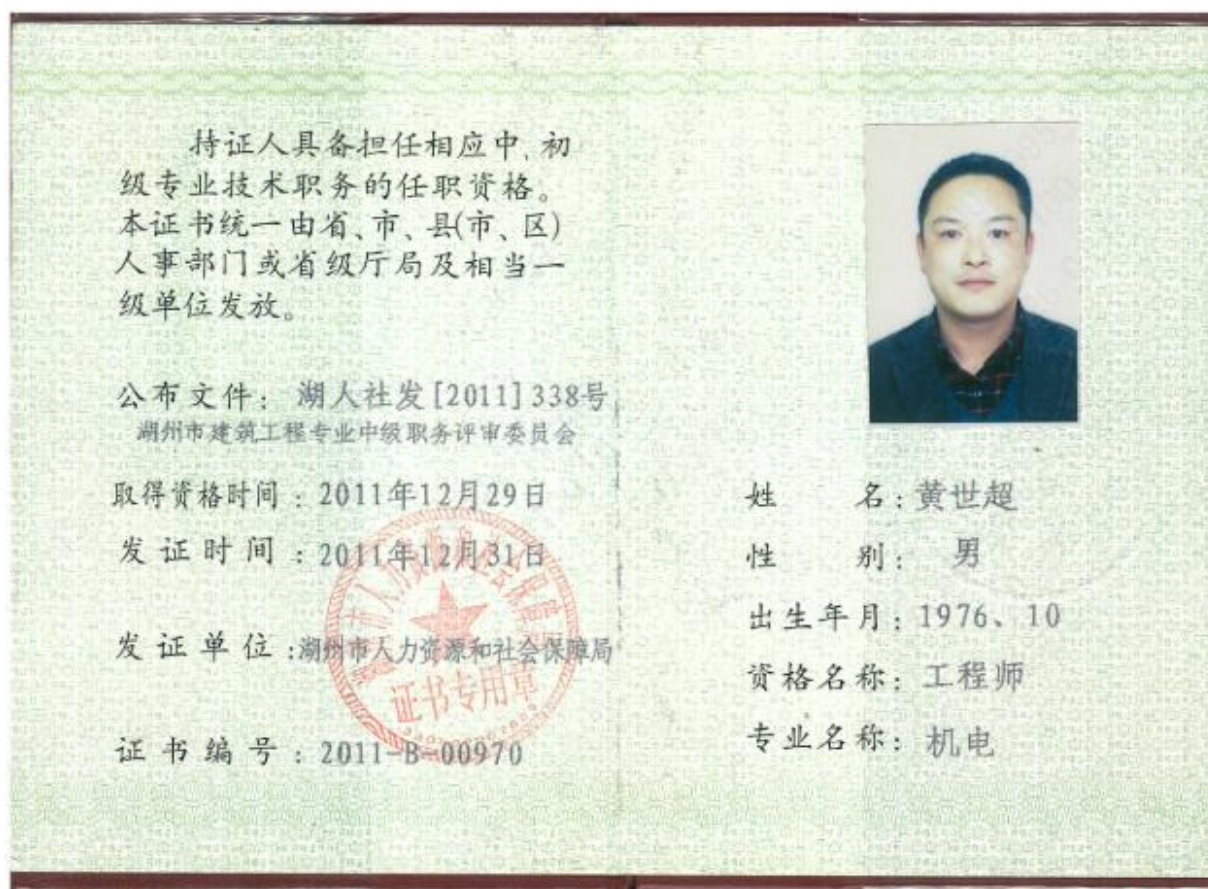 持证人具备担任相应中、初
级专业技术职务的任职资格。
本证书统一由省、市、县(市、区)
人事部门或省级厅局及相当一
级单位发放。
公布文件：湖人社发[2011]338号
湖州市建筑工程专业中级职务评审委员会
取得资格时间：2011年12月29日
发证时间：2011年12月31日
发证单位：湖州市人力资源和社会保障局
证书编号：2011-B-00970
证书专用章
姓 名：黄世超
性 别：男
出生年月：1976、10
资格名称：工程师
专业名称：机电